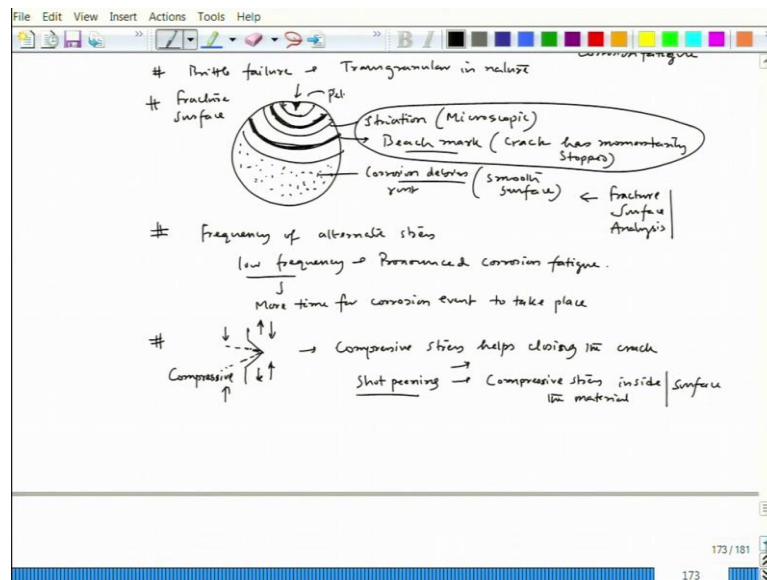 File Edit View Insert Actions Tools Help
B I
Corrosion fatigue
# Brittle failure → Transgranular in nature
# Fracture surface
Pit
Striation (Microscopic)
Beach mark (Crack has momentarily stopped)
Corrosion debries rust (smooth surface) ← Fracture Surface Analysis
# Frequency of alternatic stress
low frequency → Pronounced corrosion fatigue.
More time for corrosion event to take place
# Compressive → Compressive stress helps closing the crack
Shot peening → Compressive stress inside the material | surface
173 / 181
173